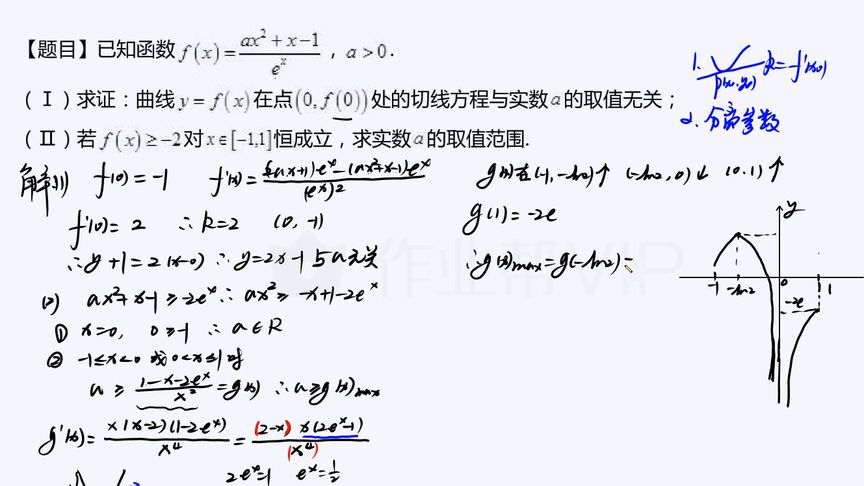 【题目】已知函数 f(x)=(ax²+x-1)/eˣ , a>0.
(Ⅰ)求证:曲线 y=f(x) 在点(0,f(0))处的切线方程与实数 a 的取值无关;
(Ⅱ)若 f(x)≥-2 对 x∈[-1,1] 恒成立,求实数 a 的取值范围.
1. P(x₀,y₀) k=f'(x₀)
2. 分离参数
解:(1) f(0)=-1 f'(x)=((2ax+1)eˣ-(ax²+x-1)eˣ)/(eˣ)²
f'(0)=2 ∴k=2 (0,-1)
∴y+1=2(x-0) ∴y=2x-1与a无关
(2) ax²+x-1≥-2eˣ ∴ax²≥-x+1-2eˣ
① x=0, 0≥-1 ∴a∈R
② -1≤x<0 或 0<x≤1时
a≥(1-x-2eˣ)/x²=g(x) ∴a≥g(x)max
g'(x)=(x(x-2)(1-2eˣ))/x⁴=((2-x)x(2eˣ-1))/(x⁴)
2eˣ=1 eˣ=1/2
g(x)在(-1,-ln2)↑ (-ln2,0)↓ (0,1)↑
g(1)=-2e
∴g(x)max=g(-ln2)=
y
-1 -ln2 0 1
-2e
作业帮VIP